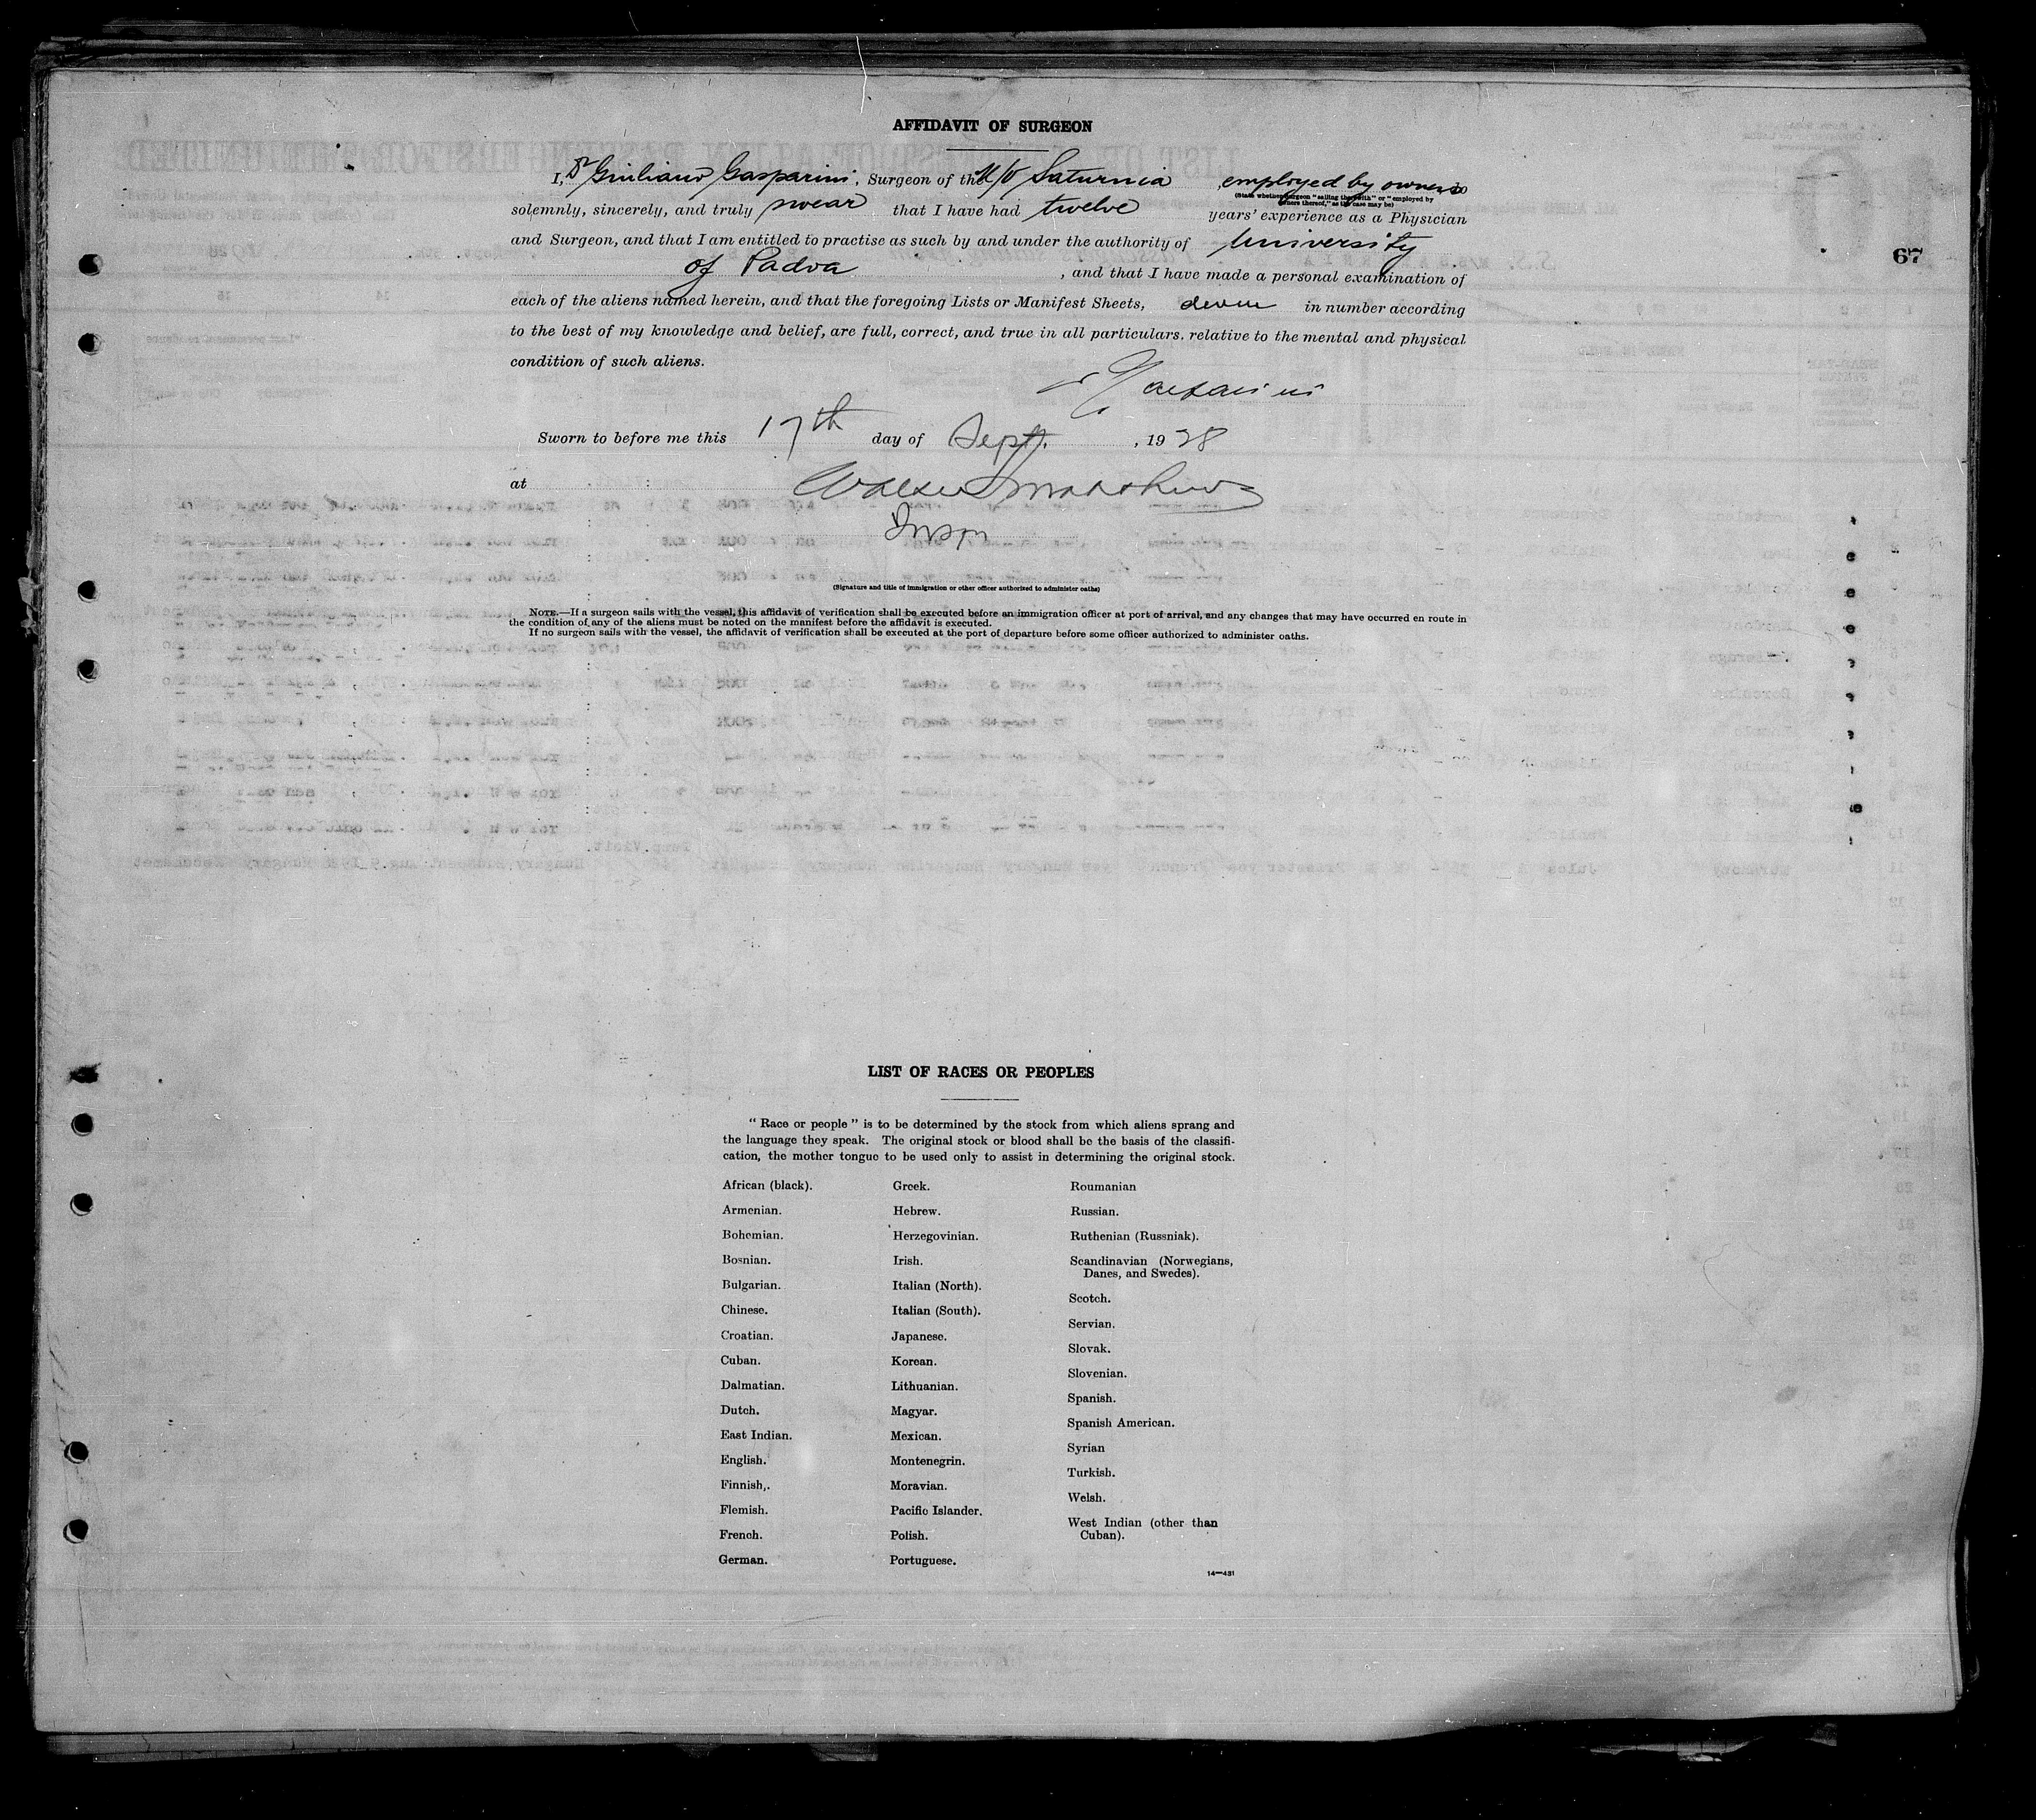 AFFIDAVIT OF SURGEON
I, Dr Giuliano Gasparini, Surgeon of the M/V Saturnia employed by owners do
(State whether surgeon "sailing therewith" or "employed by
owners thereof," as the case may be)
solemnly, sincerely, and truly swear that I have had twelve years' experience as a Physician
and Surgeon, and that I am entitled to practise as such by and under the authority of University
of Padva, and that I have made a personal examination of
67
each of the aliens named herein, and that the foregoing Lists or Manifest Sheets, in number according
to the best of my knowledge and belief, are full, correct, and true in all particulars, relative to the mental and physical
condition of such aliens.
Gasparini
Sworn to before me this 17th day of Sept., 1928
at
Insp
(Signature and title of immigration or other officer authorized to administer oaths)
NOTE.—If a surgeon sails with the vessel, this affidavit of verification shall be executed before an immigration officer at port of arrival, and any changes that may have occurred en route in
the condition of any of the aliens must be noted on the manifest before the affidavit is executed.
If no surgeon sails with the vessel, the affidavit of verification shall be executed at the port of departure before some officer authorized to administer oaths.
LIST OF RACES OR PEOPLES
"Race or people" is to be determined by the stock from which aliens sprang and
the language they speak. The original stock or blood shall be the basis of the classifi-
cation, the mother tongue to be used only to assist in determining the original stock.
African (black).
Armenian.
Bohemian.
Bosnian.
Bulgarian.
Chinese.
Croatian.
Cuban.
Dalmatian.
Dutch.
East Indian.
English.
Finnish,.
Flemish.
French.
German.
Greek.
Hebrew.
Herzegovinian.
Irish.
Italian (North).
Italian (South).
Japanese.
Korean.
Lithuanian.
Magyar.
Mexican.
Montenegrin.
Moravian.
Pacific Islander.
Polish.
Portuguese.
Roumanian
Russian.
Ruthenian (Russniak).
Scandinavian (Norwegians,
Danes, and Swedes).
Scotch.
Servian.
Slovak.
Slovenian.
Spanish.
Spanish American.
Syrian
Turkish.
Welsh.
West Indian (other than
Cuban).
14—431